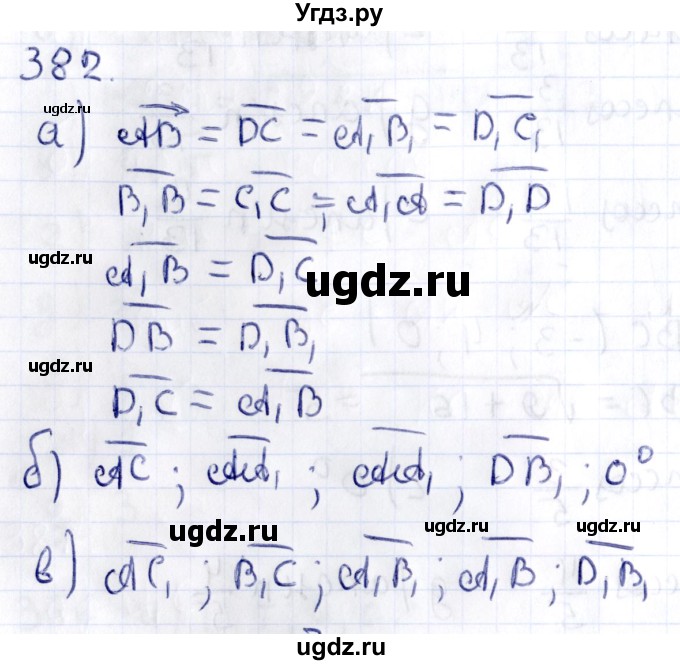 Угдз.ру
382.
а) AB = DC = A₁B₁ = D₁C₁
ugdz.ru
B₁B = C₁C = A₁A = D₁D
ugdz.ru
A₁B = D₁C
ugdz.ru
ugdz.ru
DB = D₁B₁
ugdz.ru
D₁C = A₁B
б) AC ; AA₁ ; AA₁ ; DB₁ ; 0°
ugdz.ru
ugdz.ru
в) AC₁ ; B₁C ; A₁B₁ ; A₁B ; D₁B₁
ugdz.ru